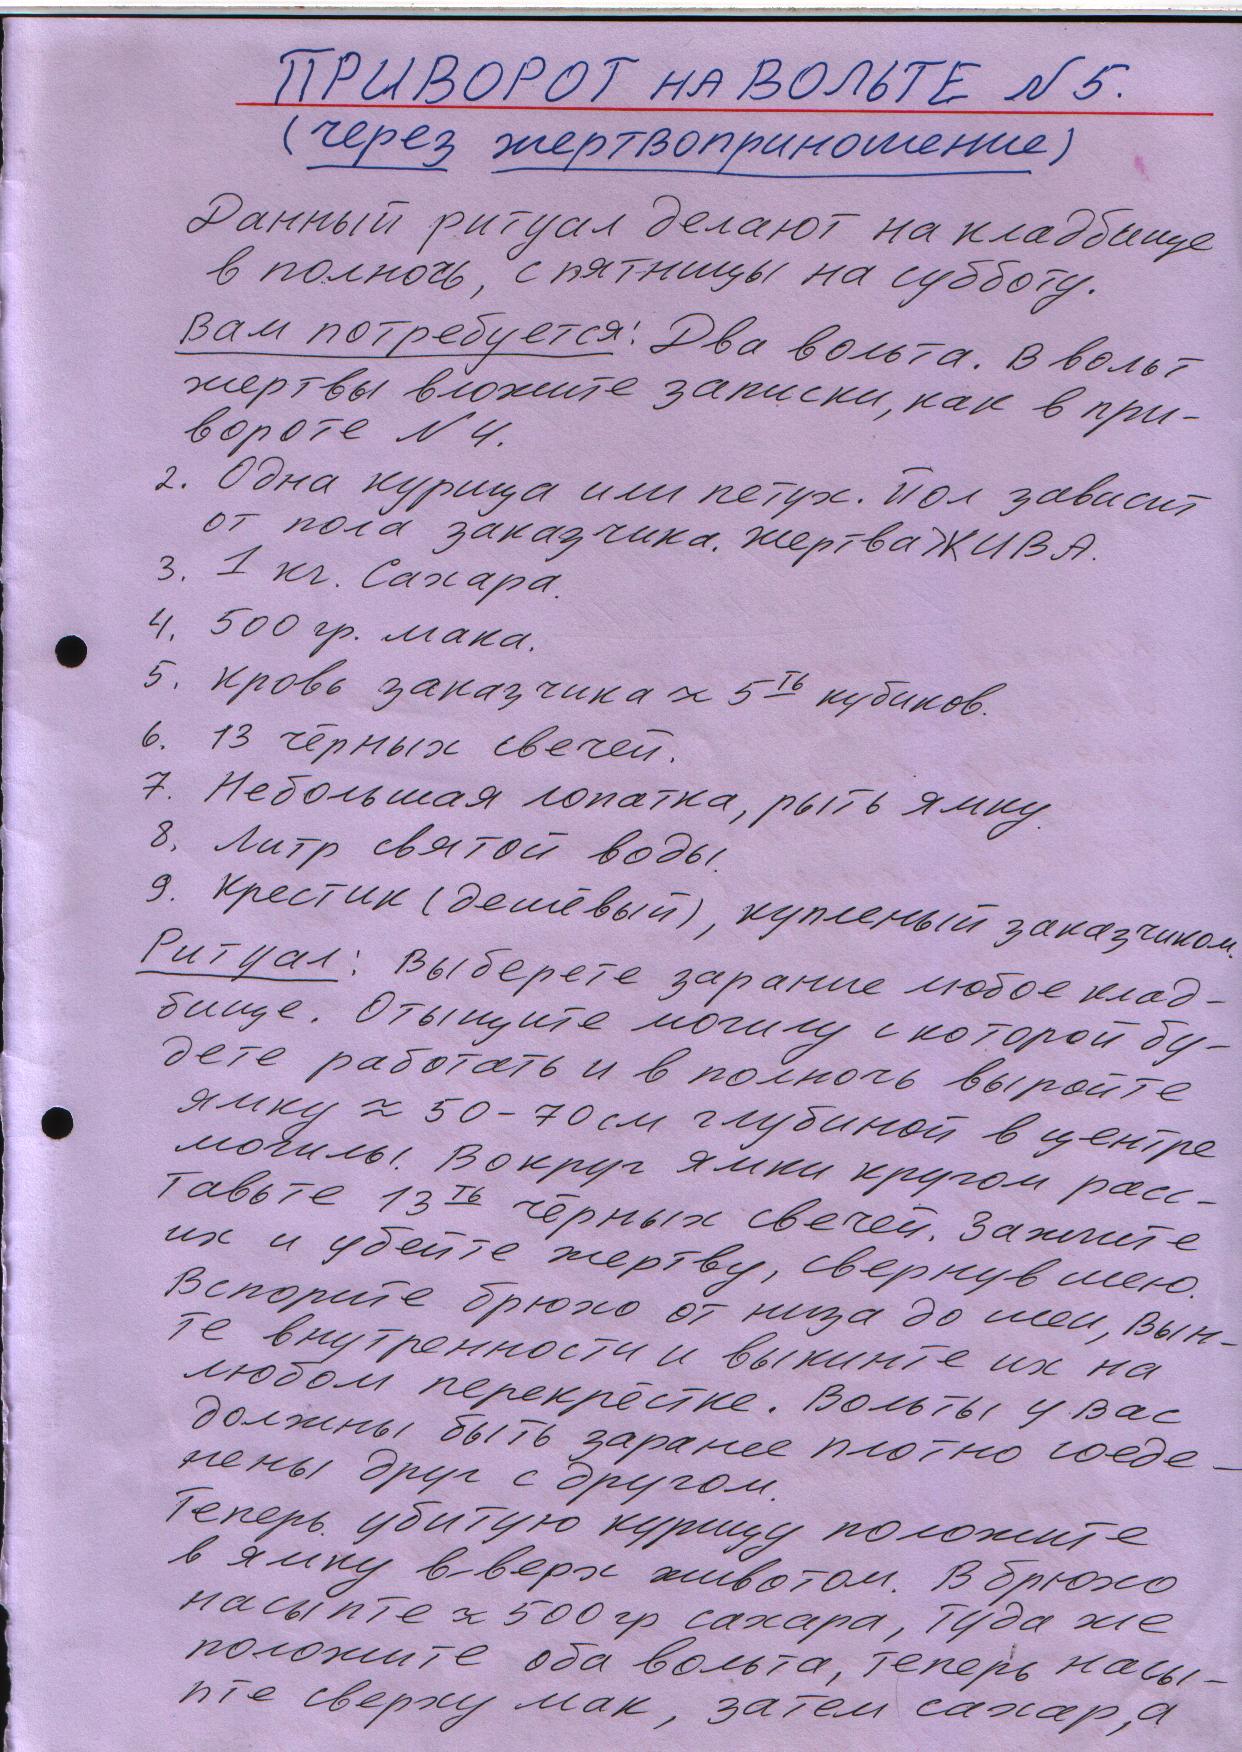 ПРИВОРОТ НА ВОЛЬТЕ N 5.
(через жертвоприношение)
Данный ритуал делают на кладбище
в полночь, с пятницы на субботу.
Вам потребуется: Два вольта. В вольт
жертвы вложите записки, как в при-
вороте N 4.
2. Одна курица или петух. Пол зависит
от пола заказчика. Жертва ЖИВА.
3. 1 кг. Сахара.
4. 500 гр. мака.
5. Кровь заказчика ≈ 5ть кубиков.
6. 13 чёрных свечей.
7. Небольшая лопатка, рыть ямку.
8. Литр святой воды.
9. Крестик (дешёвый), купленый заказчиком.
Ритуал: Выберете зарание любое клад-
бище. Отыщите могилу с которой бу-
дете работать и в полночь выройте
ямку ≈ 50-70 см глубиной в центре
могилы. Вокруг ямки кругом расс-
тавьте 13ть чёрных свечей. Зажгите
их и убейте жертву, свернув шею.
Вспорите брюхо от низа до шеи, вын-
те внутренности и выкинте их на
любом перекрёстке. Вольты у вас
должны быть заранее плотно соеде-
нены друг с другом.
Теперь убитую курицу положите
в ямку в-верх животом. В брюхо
насыпте ≈ 500 гр сахара, туда же
положите оба вольта, теперь насы-
пте сверху мак, затем сахар, а